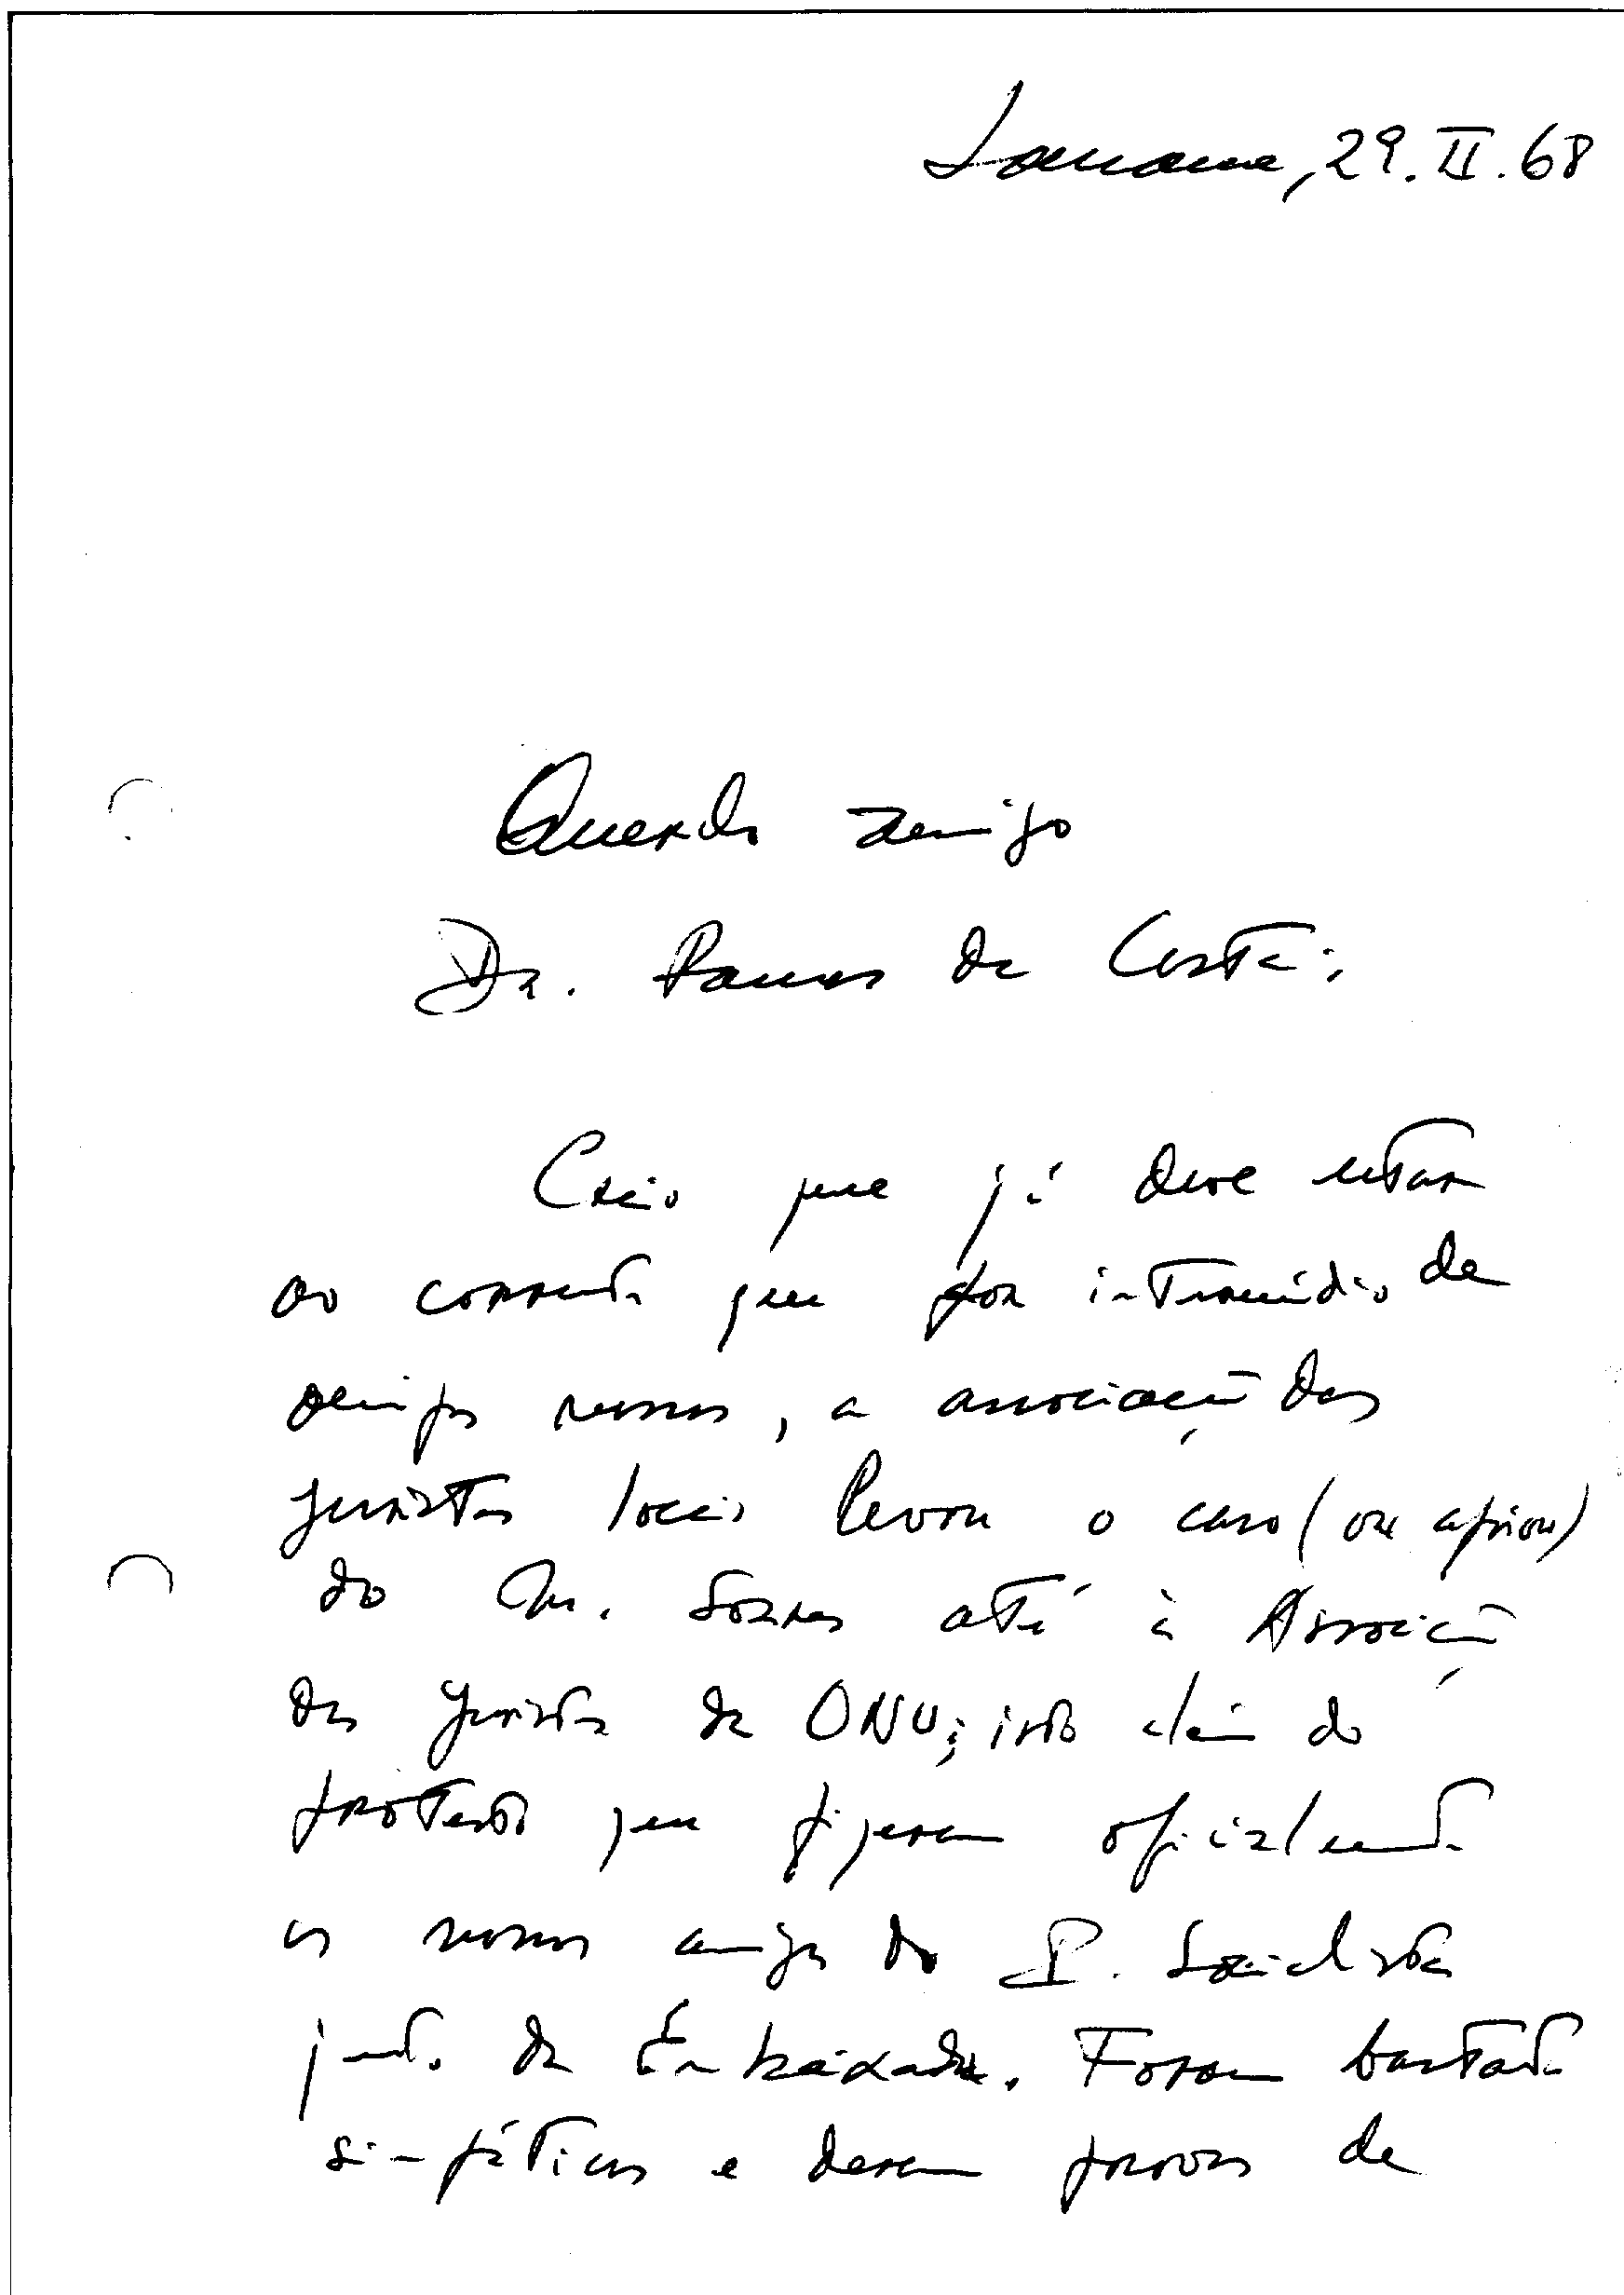 Lausanne, 29.II.68
Querido amigo
Dr. Ramos da Costa:
Creio que já deve estar
ao corrente que por intermédio de
amigos nossos, a associação dos
juristas locais levou o caso (ou apoiou)
do M. Soares até à Associação
dos Juristas da ONU; isto além do
protesto que fizeram oficialmente
os nossos amigos do P. Socialista
junto da Embaixada. Foram bastante
simpáticos e deram provas de